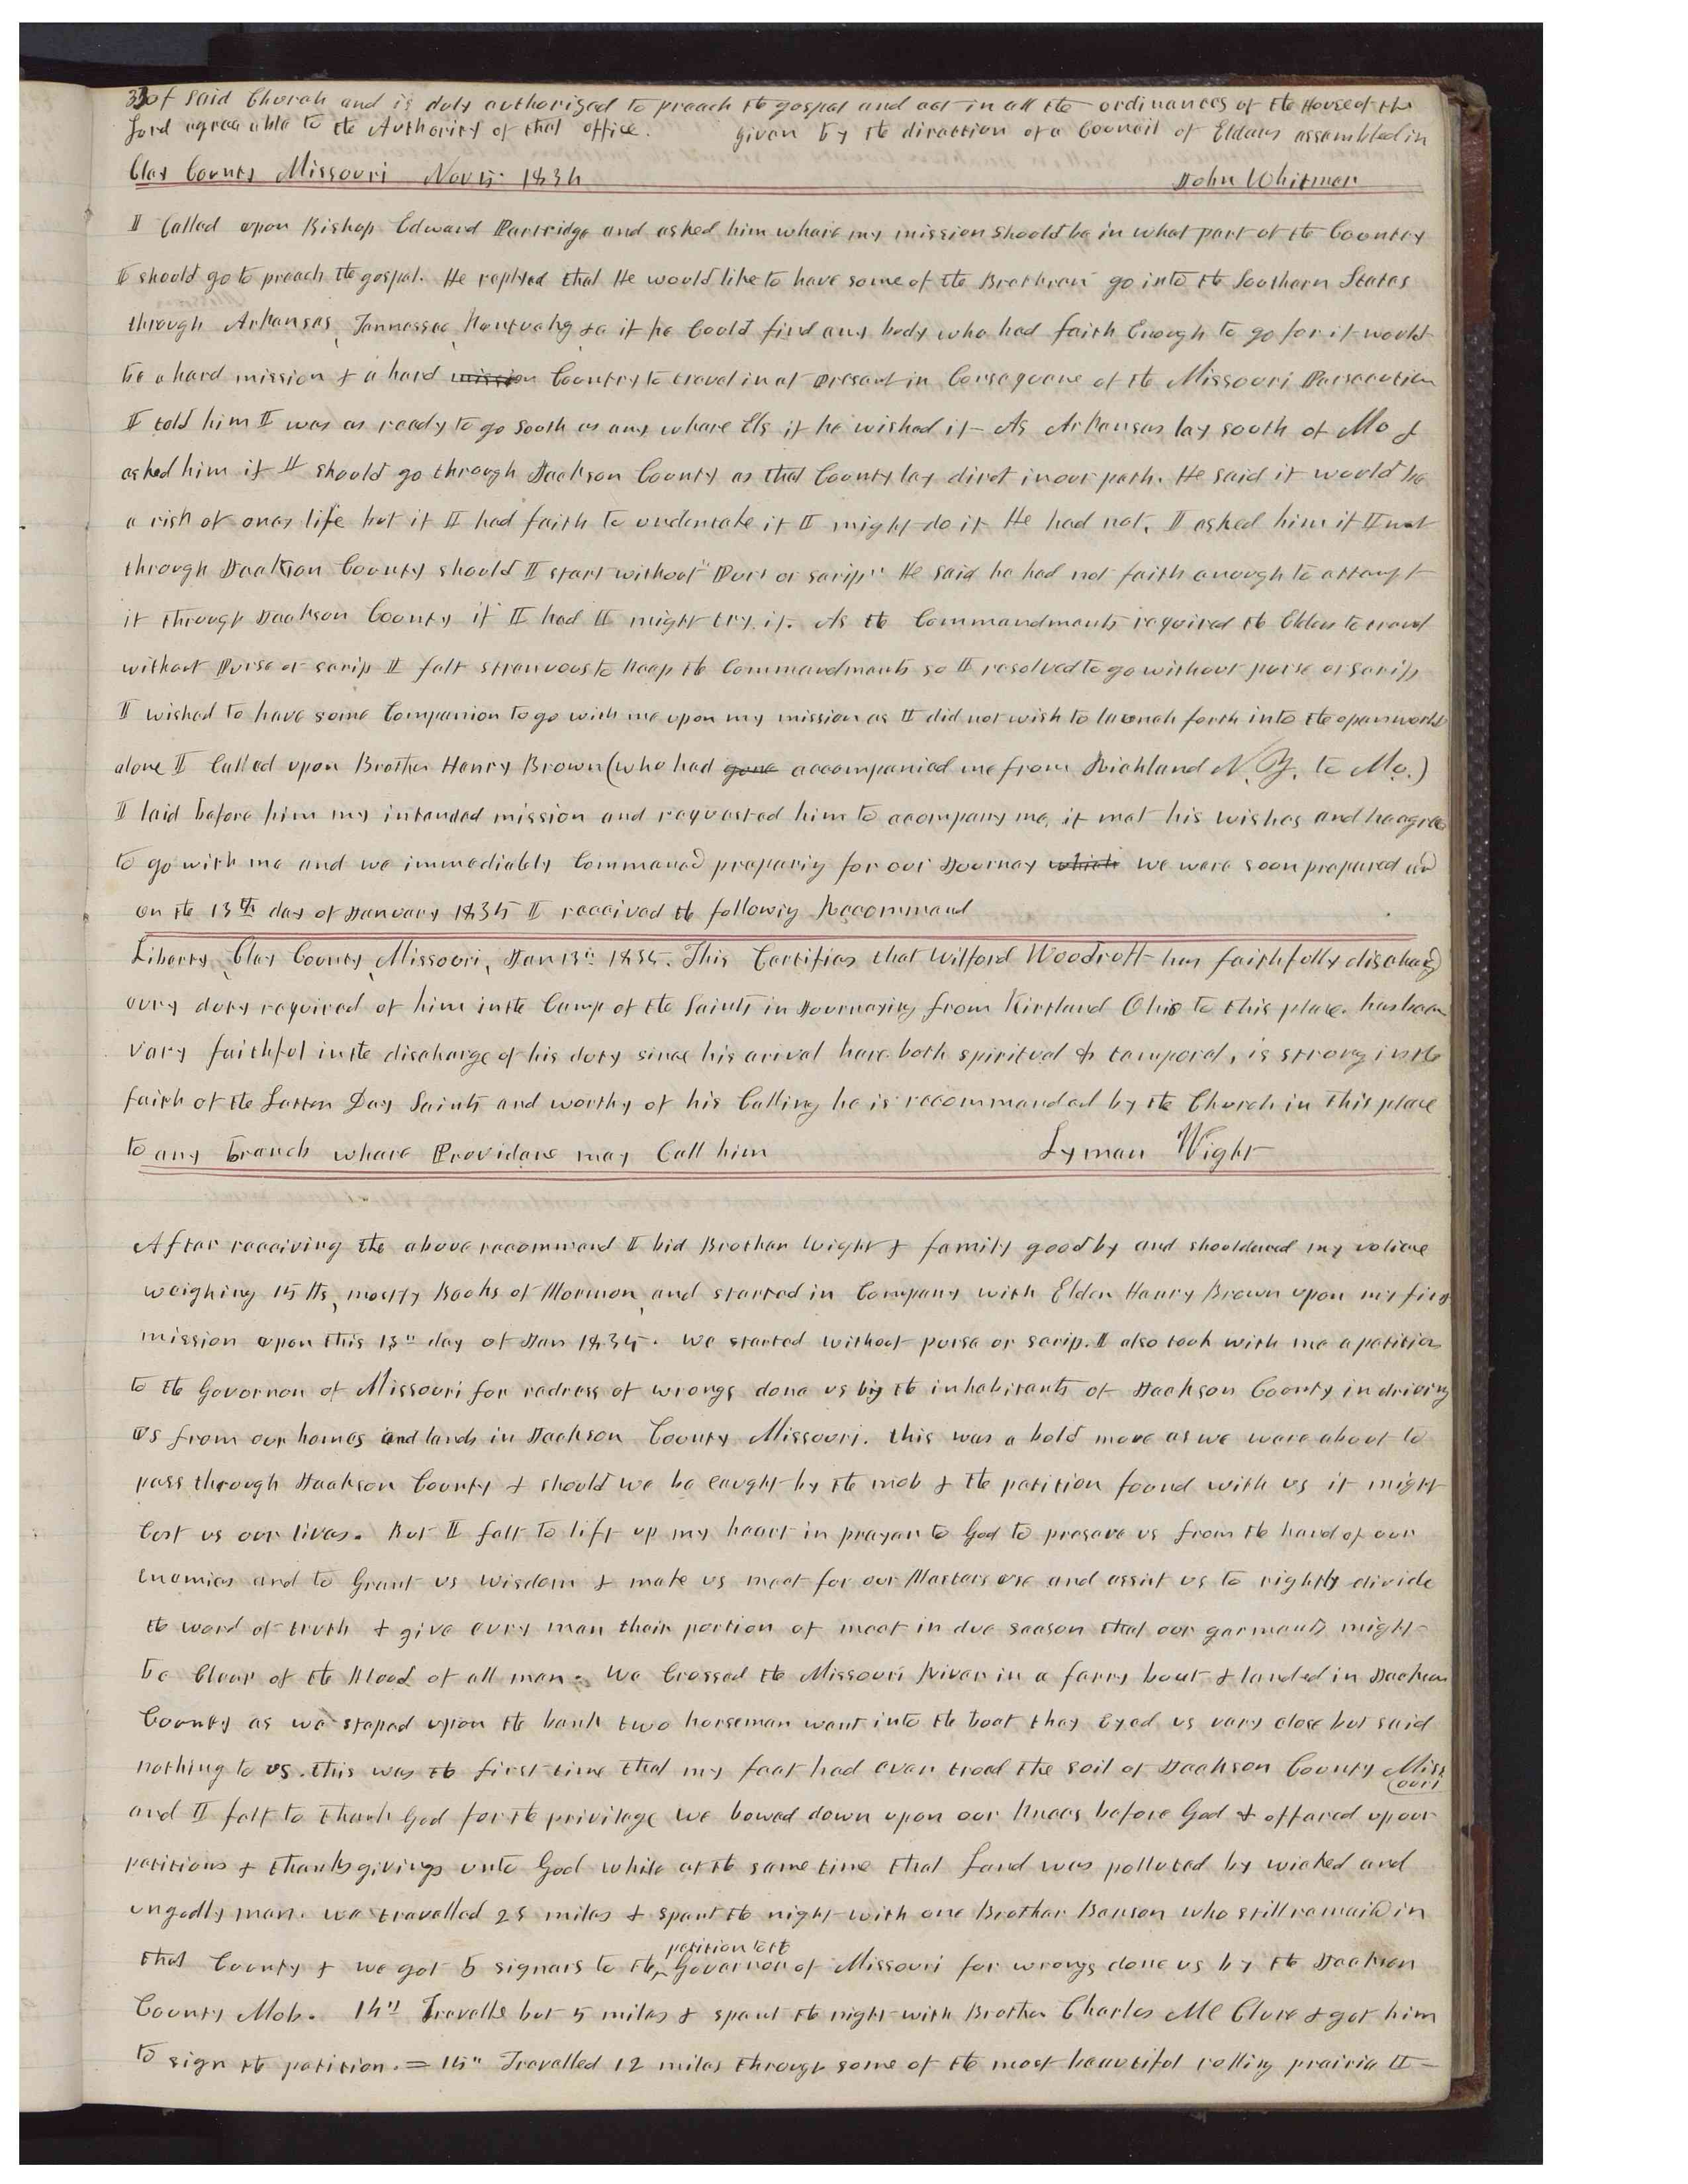 33 of said Church and is duly authorized to preach the gospel and act in all the ordinances of the House of the
Lord agreeable to the Authority of that office. Given by the direction of a Council of Elders assembled in
Clay County Missouri Nov 5th 1834 John Whitmer
I Called upon Bishop Edward Partridge and asked him whare my mission should be in what part of the Country
I should go to preach the gospel. He replyed that He would like to have some of the Brethren go into the Southern States
through Arkansas, Tennessee, Kentucky &c if he Could find any body who had faith Enough to go for it would
be a hard mission & a hard mission Country to travel in at present in Consequene of the Missouri Persecution
I told him I was as ready to go South as any whare Els if he wished it As Arkansas lay south of Mo I
asked him if I should go through Jackson County as that County lay diret in our path. He said it would be
a risk of ones life but if I had faith to undertake it I might do it He had not, I asked him if I went
through Jackson County should I start without "Purs or scrip" He said he had not faith enough to attempt
it through Jackson County if I had I might try it. As the Commandments required the Elders to travel
without Purse or scrip I felt strenuous to keep the Commandments so I resolved to go without purse or scrip
I wished to have some Companion to go with me upon my mission as I did not wish to launch forth into the open world
alone I Called upon Brother Henry Brown (who had gone accompanied me from Richland N.Y. to Mo.)
I laid before him my intended mission and requested him to acompany me, it met his wishes and he agreed
to go with me and we immediately Commenced preparing for our Journey which we were soon prepared and
on the 13th day of January 1835 I received the following Recommend
Liberty, Clay County, Missouri, Jan 13th 1835. This Certifies that Wilford Woodruff has faithfully discharged
evry duty required of him in the Camp of the Saints in Journeying from Kirtland Ohio to this place. has been
very faithful in the discharge of his duty since his arival here both spiritual & temporal, is strong in the
faith of the Latter Day Saints and worthy of his Calling he is recommended by the Church in this place
to any branch whare Providene may Call him Lyman Wight
After receiving the above recommend I bid Brother Wight & family good by and shouldered my valiece
weighing 15 lbs, mostly Books of Mormon, and started in Company with Elder Henry Brown upon my first
mission upon this 13th day of Jan 1835. We started without purse or scrip. I also took with me a petition
to the Governor of Missouri for redress of wrongs done us by the inhabitants of Jackson County in driving
us from our homes and lands in Jackson County Missouri. this was a bold move as we were about to
pass through Jackson County & should we be caught by the mob & the petition found with us it might
Cost us our lives. But I felt to lift up my heart in prayer to God to preseve us from the hand of our
enemies and to Grant us wisdom & make us meet for our Masters use and assist us to rightly divide
the word of truth & give evry man their portion of meat in due season that our garments might
be Clear of the Blood of all men. We Crossed the Missouri River in a farry boat & landed in Jackson
County as we steped upon the bank two horseman went into the boat they Eyed us very close but said
nothing to us. this was the first time that my feet had ever trod the soil of Jackson County Miss
ouri
and I felt to thank God for the privilege We bowed down upon our Knees before God & offered up our
petitions & thanksgivings unto God while at the same time that Land was polluted by wicked and
ungodly men. we travelled 25 miles & spent the night with one Brother Benson who still remaind in
petition to the
that County & we got 5 signers to the Governor of Missouri for wrongs done us by the Jackson
County Mob. 14th Travelled but 5 miles & spent the night with Brother Charles McClure & got him
to sign the petition. = 15th Travelled 12 miles through some of the most beautiful rolling prairie I